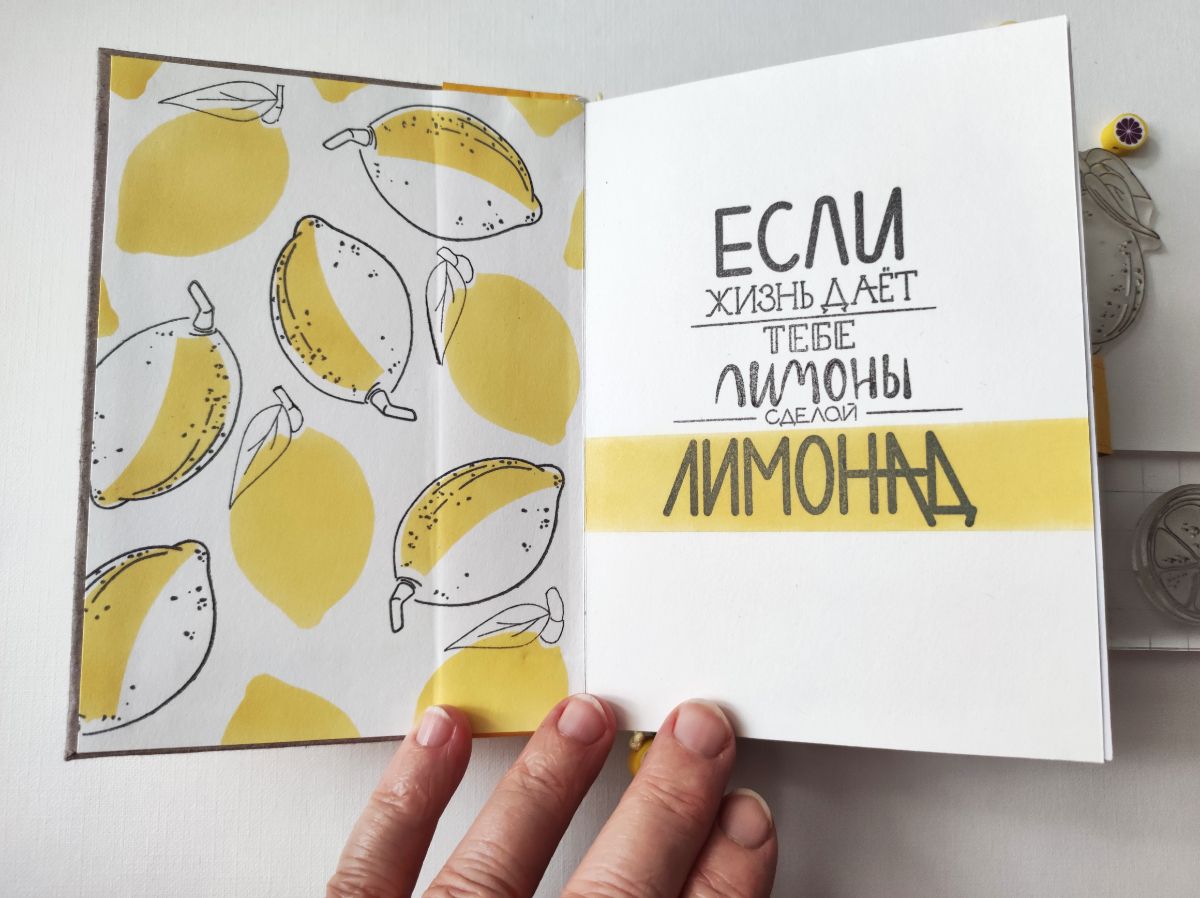 ЕСЛИ
ЖИЗНЬ ДАЁТ
ТЕБЕ
ЛИМОНЫ
СДЕЛОЙ
ЛИМОНАД